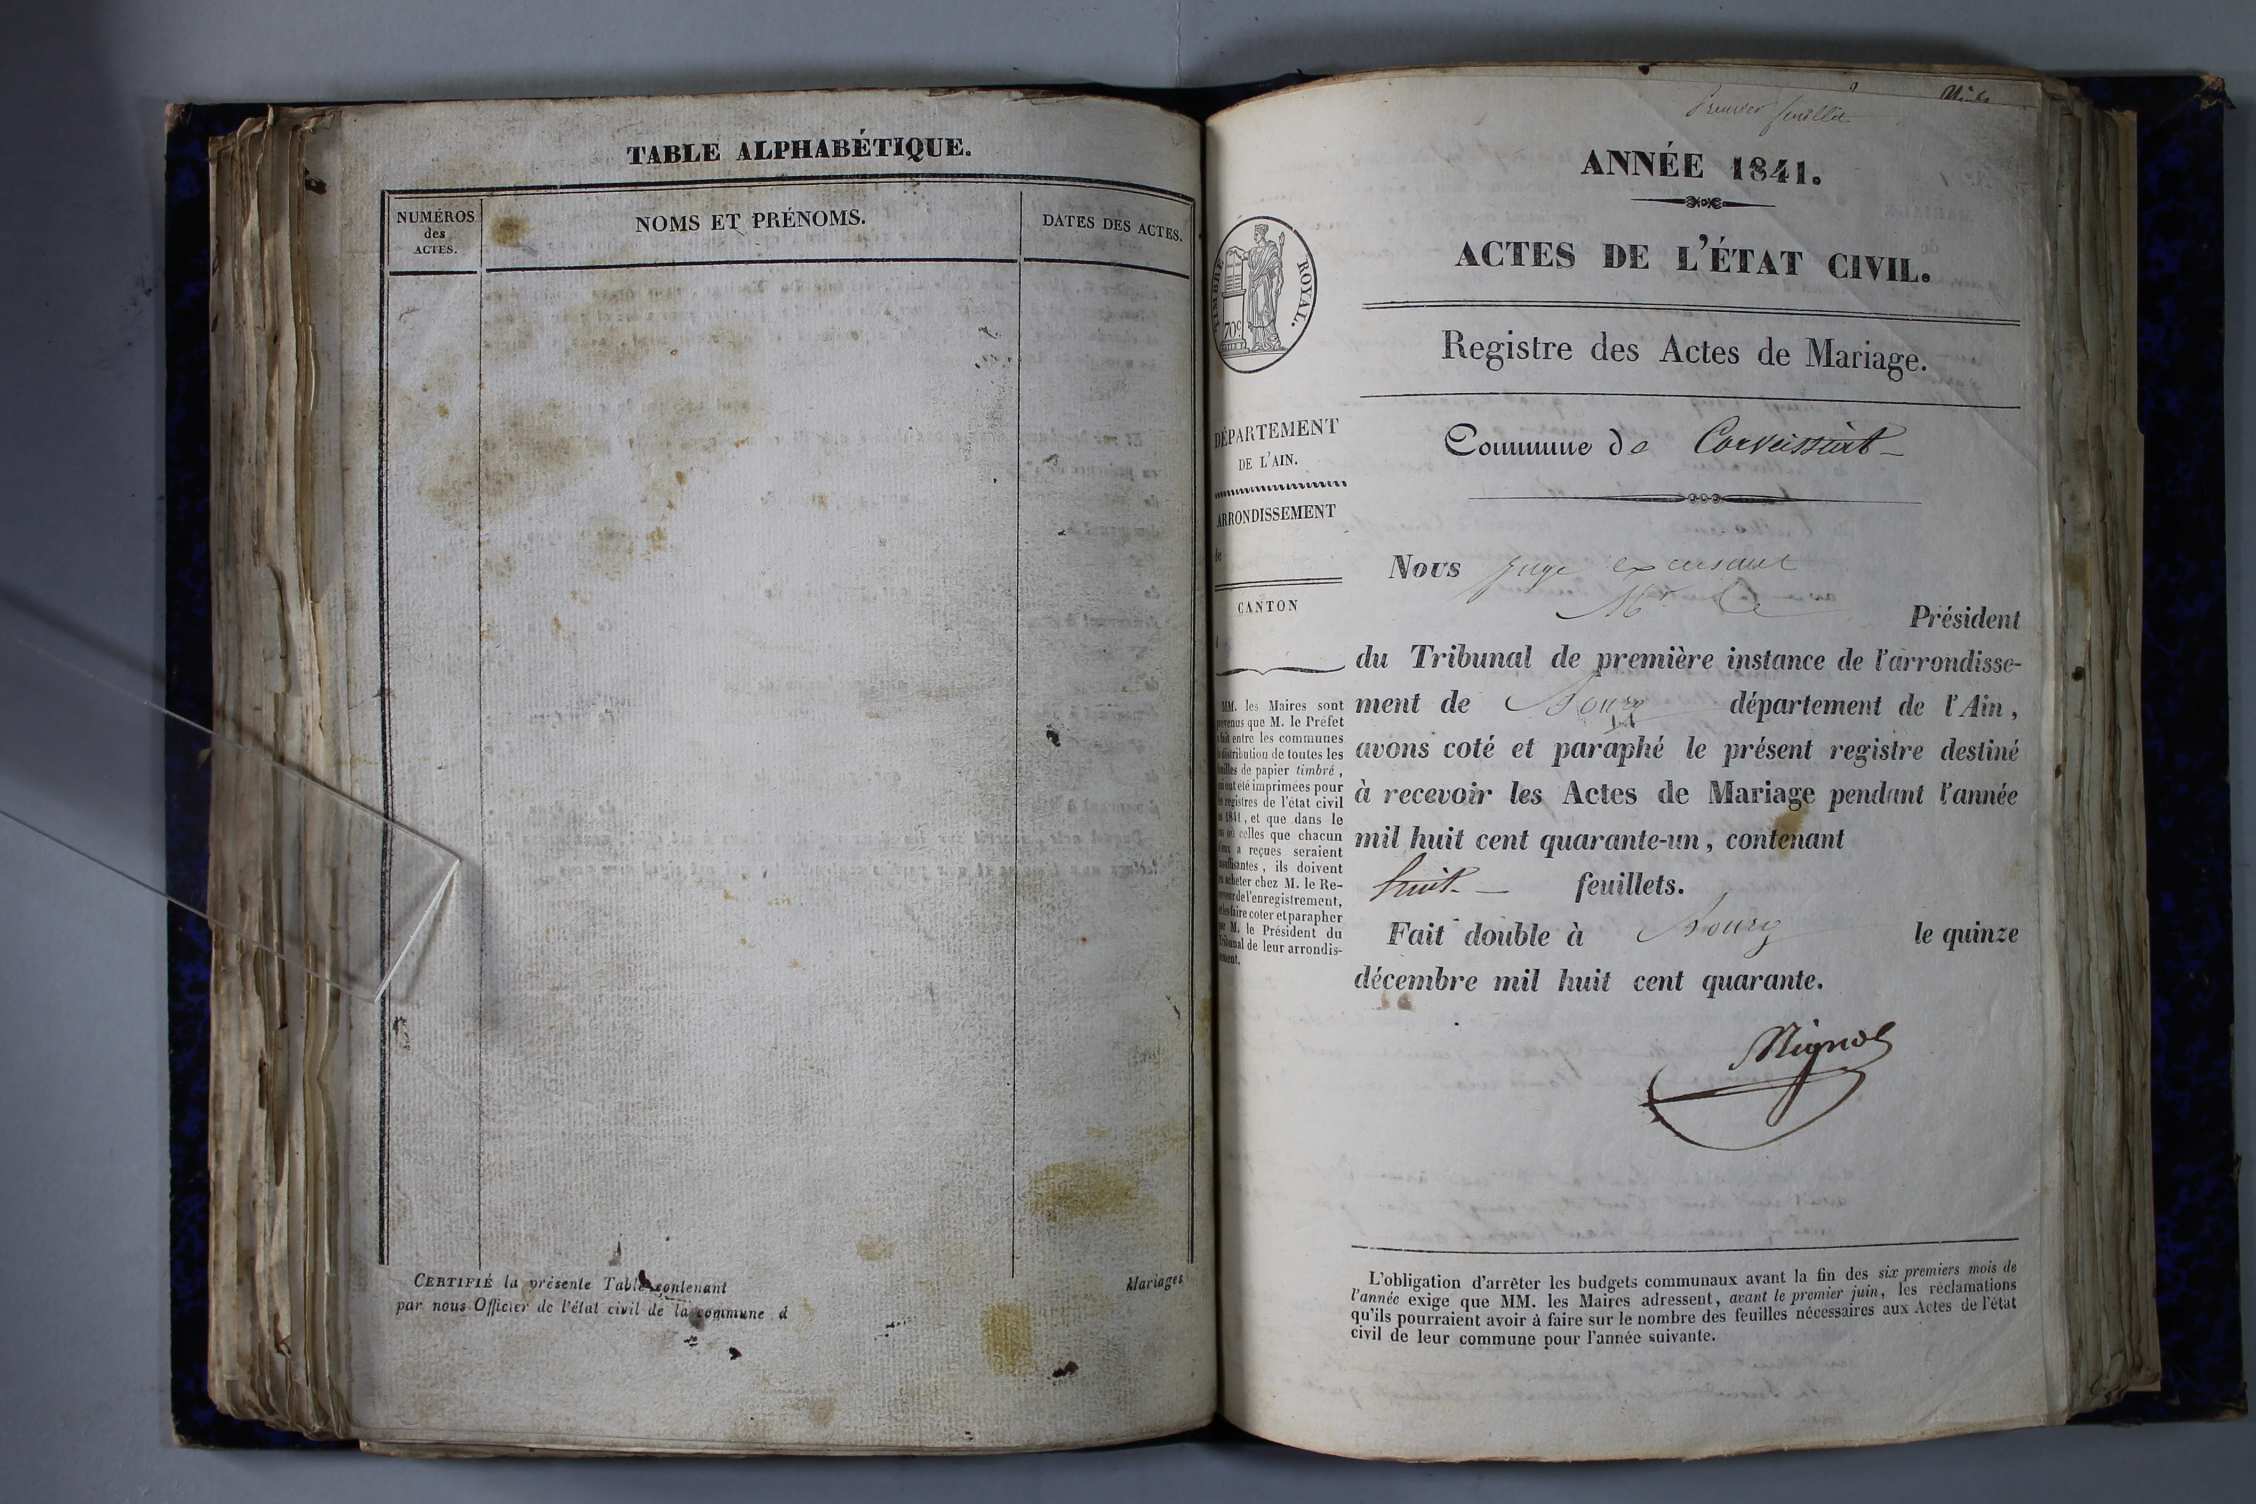 TABLE ALPHABÉTIQUE.
NUMÉROS
des
ACTES.
NOMS ET PRÉNOMS.
DATES DES ACTES.
CERTIFIÉ la présente Table contenant
par nous Officier de l'état civil de la commune d
Mariages
Premier feuillet
ANNÉE 1841.
ACTES DE L'ÉTAT CIVIL.
TIMBRE ROYAL.
70c
Registre des Actes de Mariage.
DÉPARTEMENT
DE L'AIN.
ARRONDISSEMENT
de
CANTON
MM. les Maires sont
prévenus que M. le Préfet
a fait entre les communes
la distribution de toutes les
feuilles de papier timbré,
qui ont été imprimées pour
les registres de l'état civil
de 1841, et que dans le
cas où celles que chacun
d'eux a reçues seraient
insuffisantes, ils doivent
en acheter chez M. le Re-
ceveur de l'enregistrement,
et les faire coter et parapher
par M. le Président du
Tribunal de leur arrondis-
sement.
Commune de Corveissiat
Nous juge excusant
Mr Le
Président
du Tribunal de première instance de l'arrondisse-
ment de Bourg département de l'Ain,
avons coté et paraphé le présent registre destiné
à recevoir les Actes de Mariage pendant l'année
mil huit cent quarante-un, contenant
huit feuillets.
Fait double à Bourg le quinze
décembre mil huit cent quarante.
L'obligation d'arrêter les budgets communaux avant la fin des six premiers mois de
l'année exige que MM. les Maires adressent, avant le premier juin, les réclamations
qu'ils pourraient avoir à faire sur le nombre des feuilles nécessaires aux Actes de l'état
civil de leur commune pour l'année suivante.